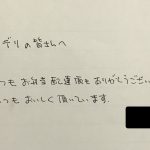 デリの皆さんへ
つもお弁当配達頂きありがとうござい
つもおいしく頂いています.